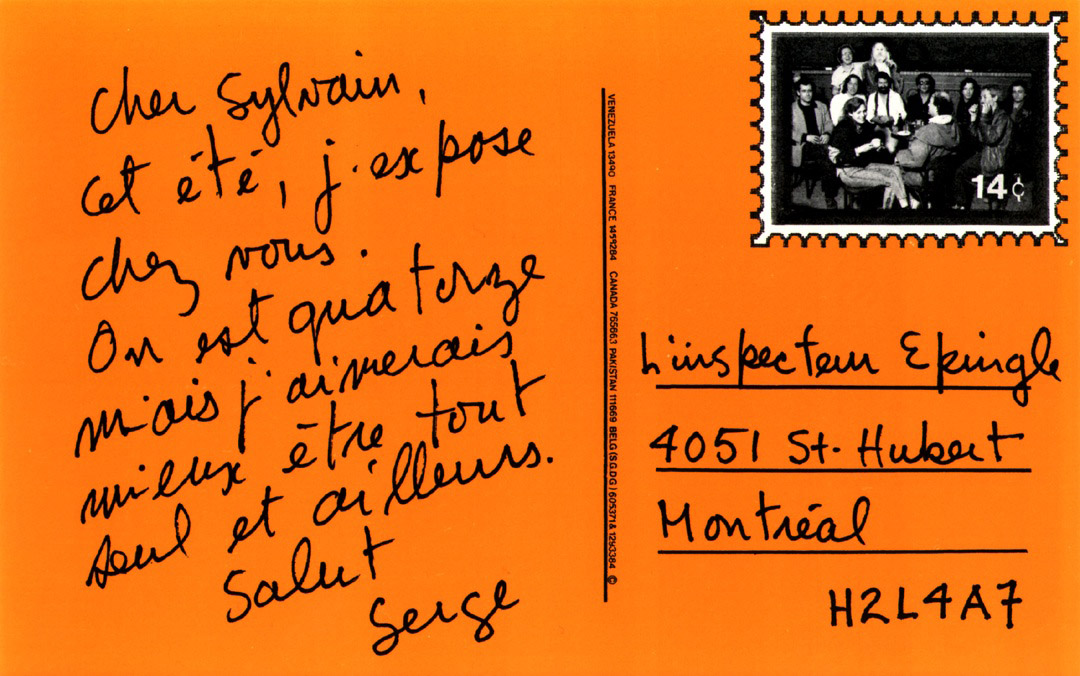 Cher Sylvain,
Cet été, j'expose
chez vous.
On est quatorze
mais j'aimerais
mieux être tout
seul et ailleurs.
Salut
Serge
VENEZUELA 13490 FRANCE 1459284 CANADA 765663 PAKISTAN 111669 BELG (SG.DG) 605371 & 1293384 ©
14¢
L'inspecteur Epingle
4051 St-Hubert
Montréal
H2L4A7